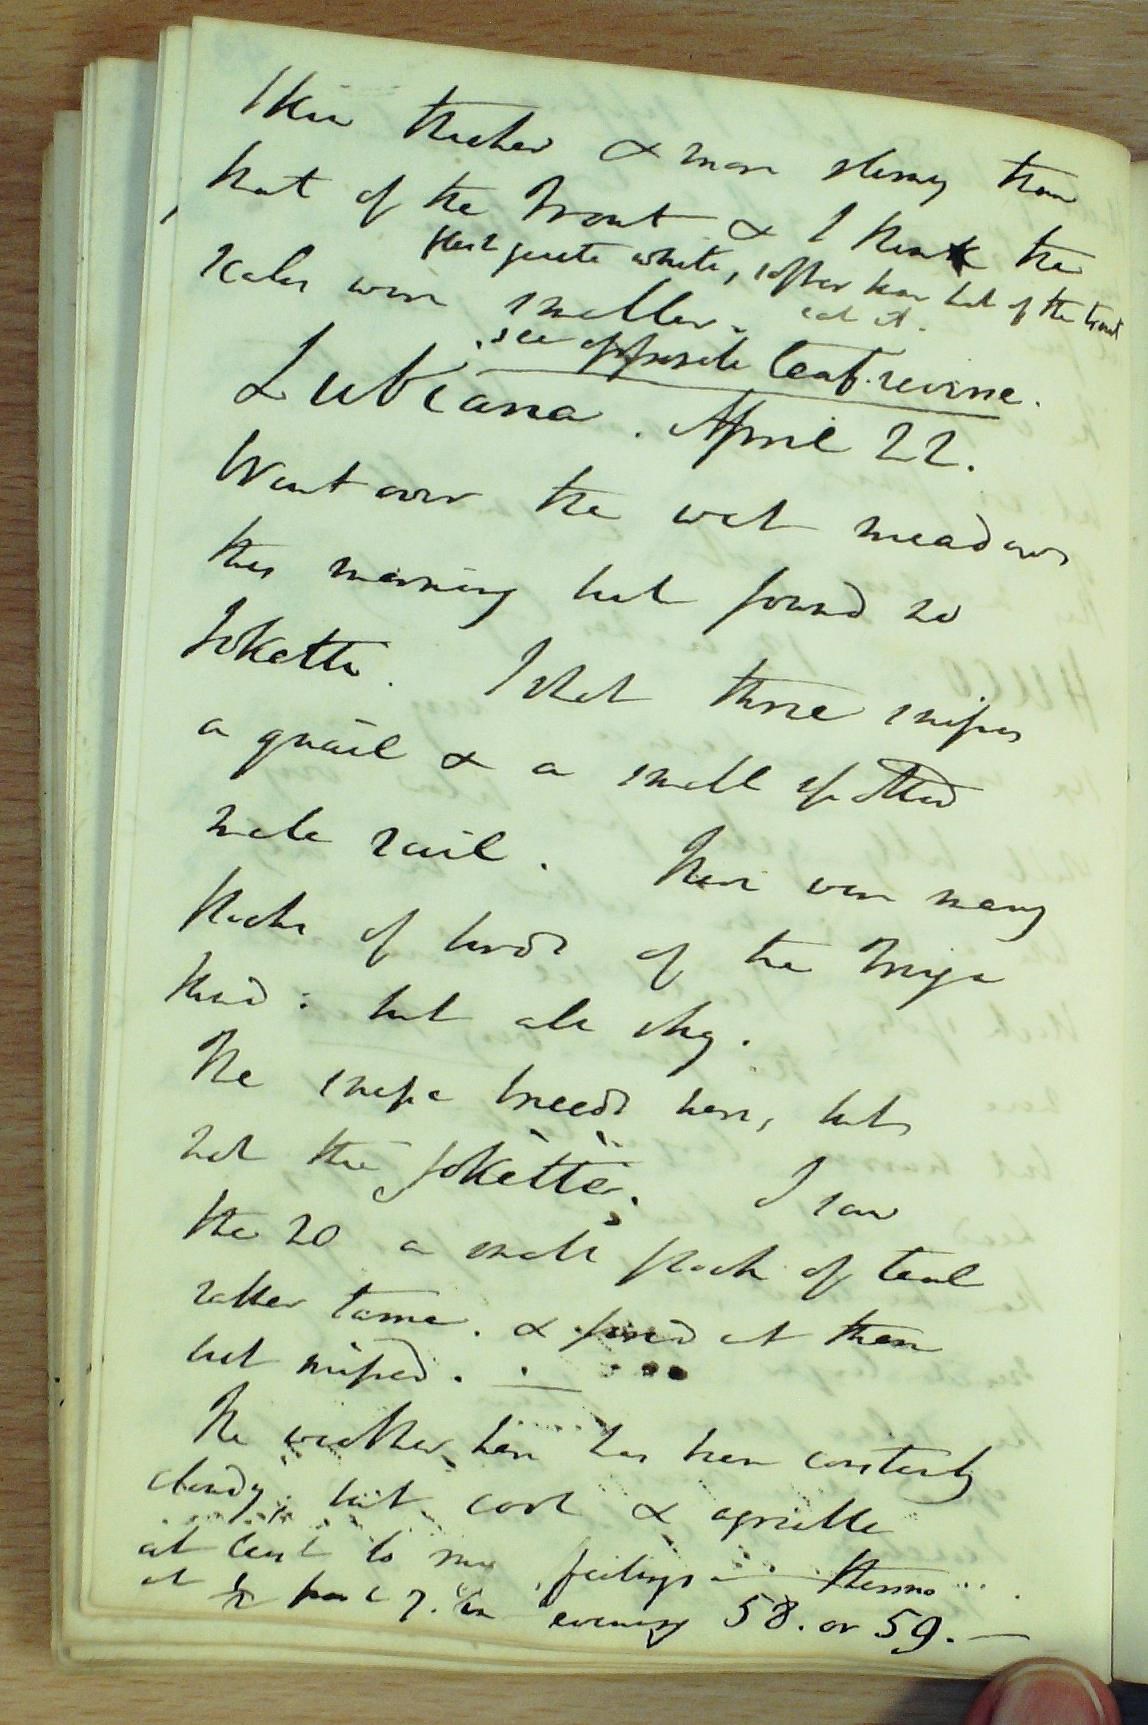 skin thicker & more slimy than
that of the Trout & I think the
flesh quite white, softer than that of the trout
scales were smaller.
see opposite leaf reverse.
Lubiana. April 22.
Went over the wet meadows
this morning but found no
sokette. I shot three snipes
a quail & a small spotted
male rail. There were many
flocks of birds of the Tringa
kind: but all shy.
The snipe breeds here, but
not the sokette. I saw
the 20 a small flock of teal
rather tame. & fired at them
but missed. —
The weather here has been constantly
cloudy; but cool & agreeable
at least to my feelings — thermo
at ½ past 7. in evening 58. or 59. —